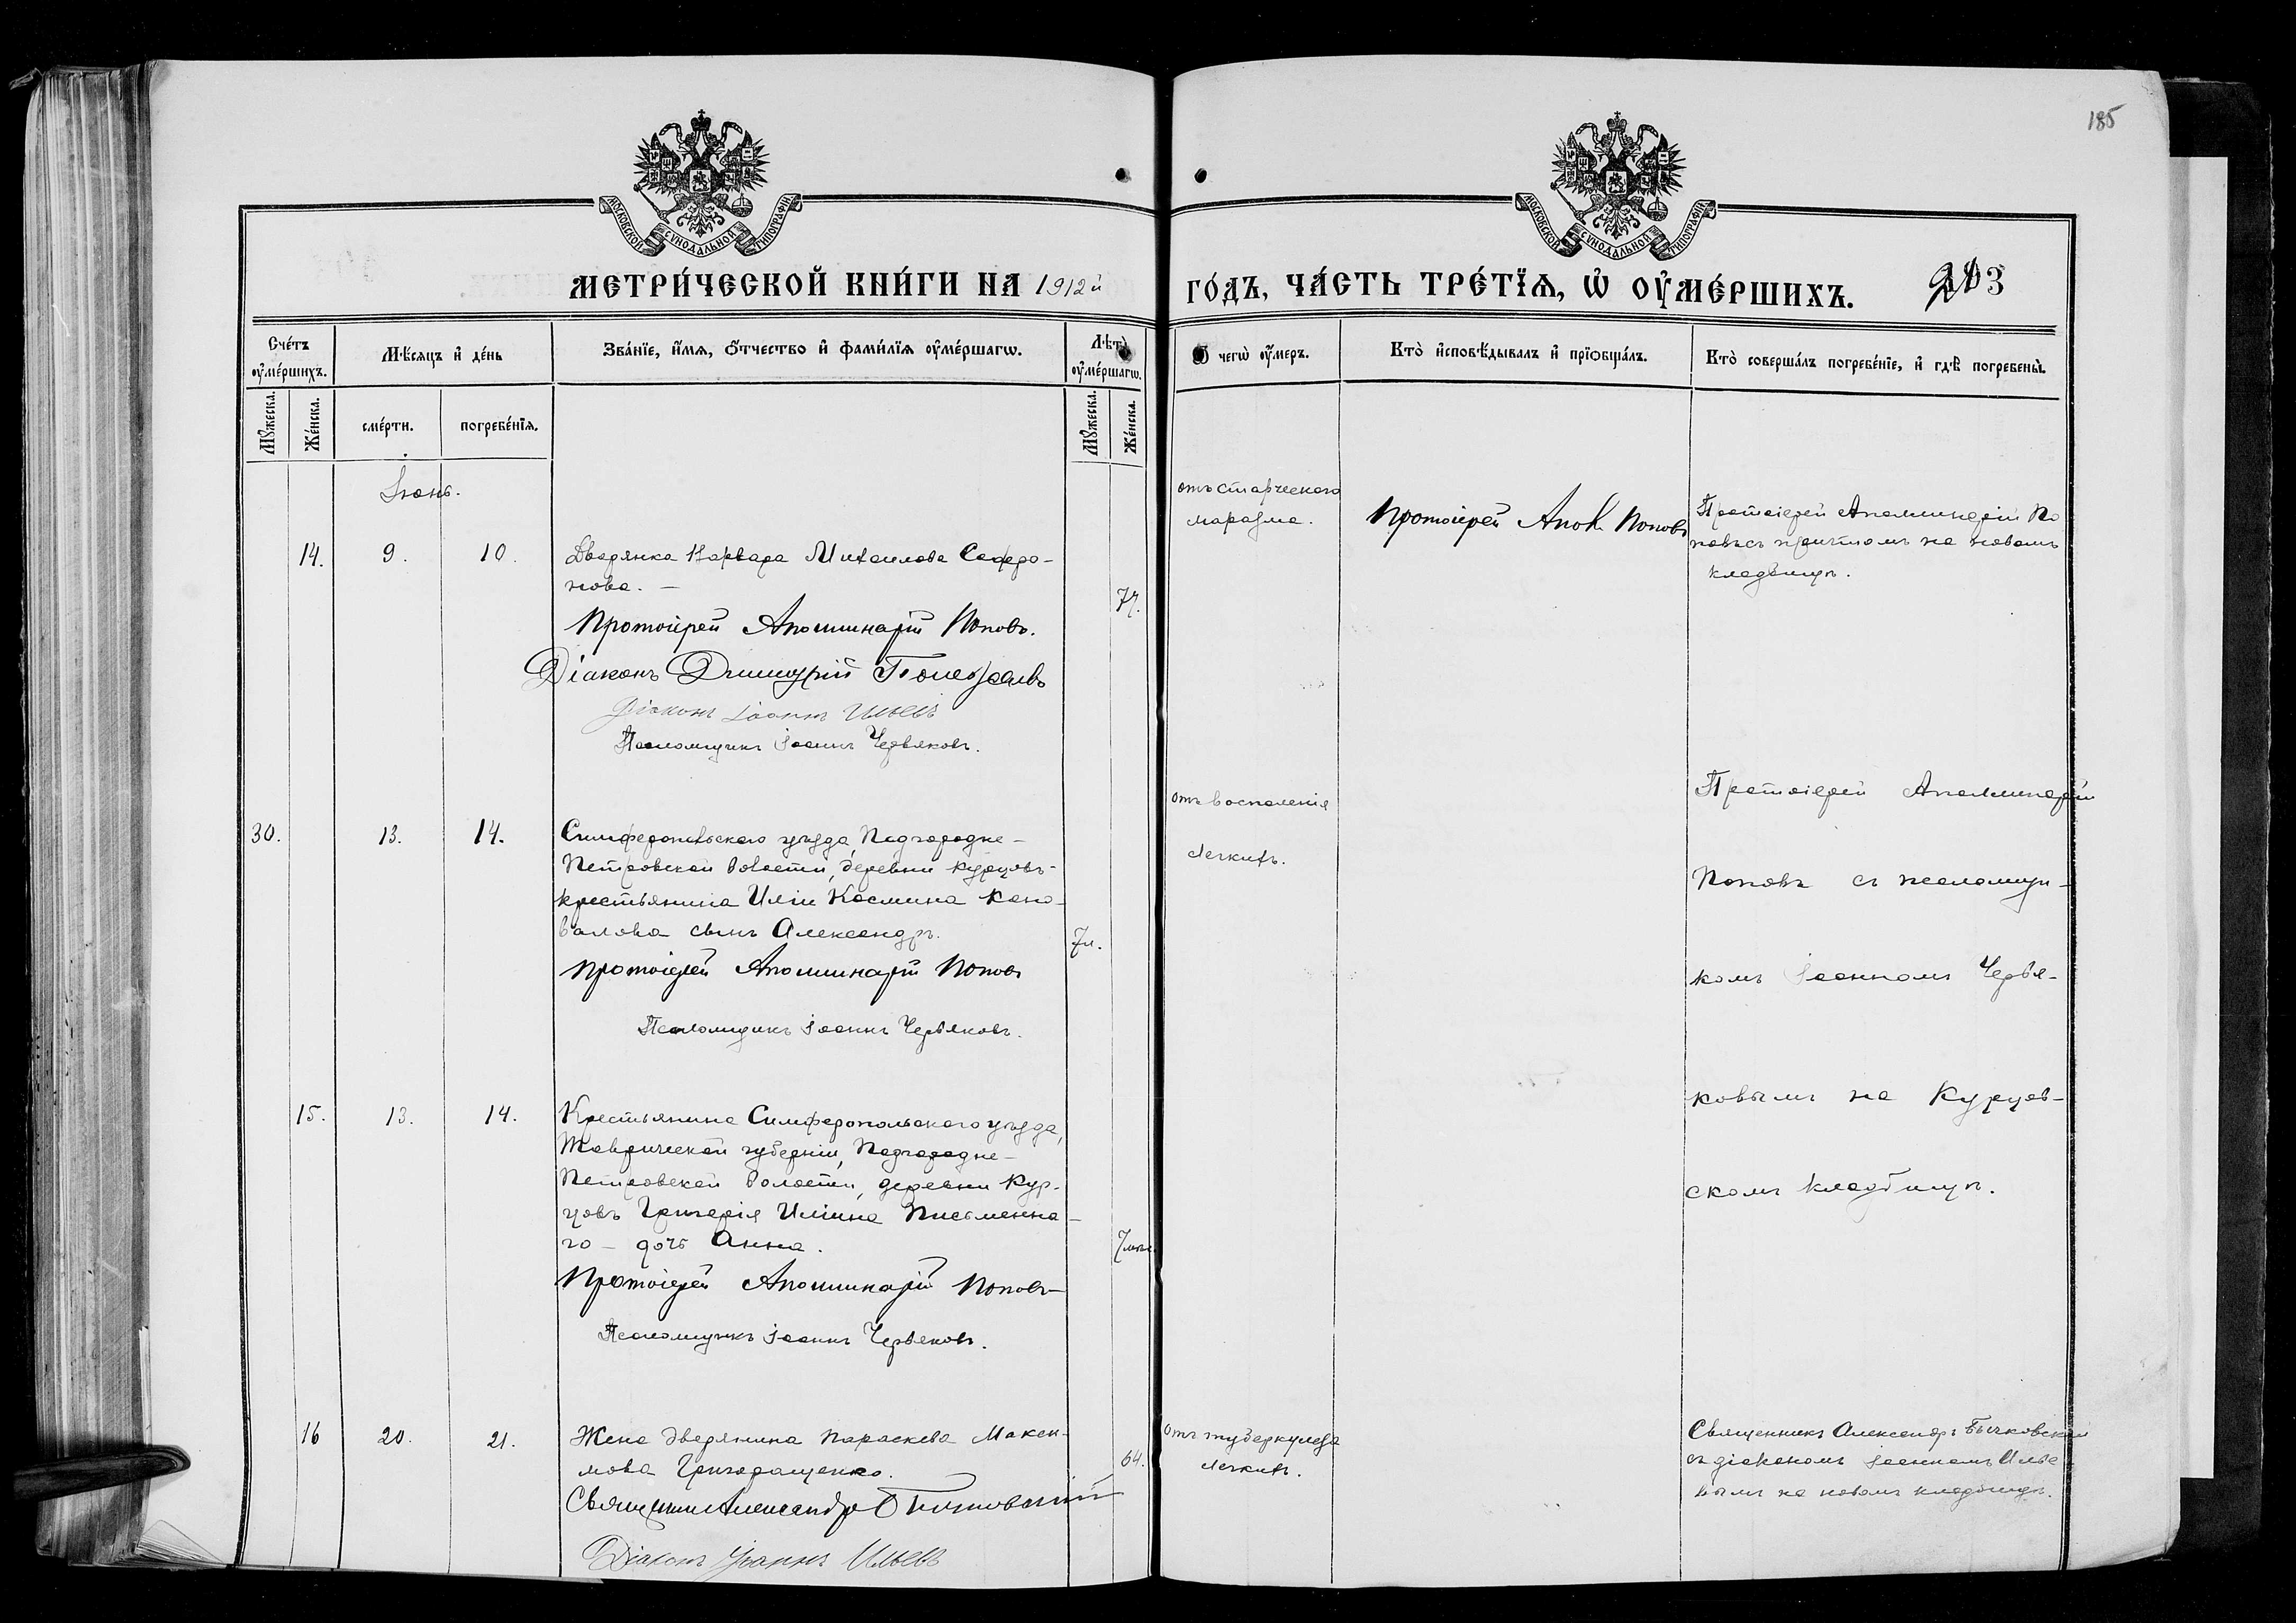 185
МОСКОВСКОЙ СѴНОДАЛЬНОЙ ТИПОГРАФІИ
МОСКОВСКОЙ СѴНОДАЛЬНОЙ ТИПОГРАФІИ
МЕТРИ́ЧЕСКОЙ КНИ́ГИ НА 1912й
ГО́ДЪ, ЧА́СТЬ ТРЕ́ТЇѦ, Ѡ҆ ОУ҆МЕ́РШИХЪ.
203
Сче́тъ оу҆ме́ршихъ.
Мѣ́сяцъ и҆ де́нь
Зва́нїе, и҆́мя, ѻ҆́тчество и҆ фами́лїя оу҆ме́ршагѡ.
Лѣ́та оу҆ме́ршагѡ.
чегѡ̀ оу҆́меръ.
Кто̀ и҆сповѣ́дывалъ и҆ прїѻбща́лъ.
Кто̀ соверша́лъ погребе́нїе, и҆ гдѣ̀ погребены̀.
Мꙋ́жеска.
Же́нска.
сме́рти.
погребе́нїя.
Мꙋ́жеска.
Же́нска.
Іюнь.
14.
9.
10.
Дворянка Варвара Михаилова Сафро-
нова. —
Протоіерей Аполлинарій Поповъ.
Діаконъ Димитрій
Діаконъ Іоаннъ Ильевъ
Псаломщикъ Іоаннъ Червяковъ.
отъ старческаго
маразма.
Протоіерей Апол. Поповъ
Протоіерей Аполлинарій По
повъ съ причтомъ на новомъ
кладбищѣ.
30.
13.
14.
Симферопольскаго уѣзда, Подгородне-
Петровской волости, деревни Курцовъ-
крестьянина Иліи Космина Коно-
валова сынъ Александръ.
7л.
Протоіерей Аполлинарій Поповъ
Псаломщикъ Іоаннъ Червяковъ.
отъ воспаленія
легкихъ.
Протоіерей Аполлинарій
Поповъ съ псаломщи-
комъ Іоанномъ Червя-
ковымъ на Курцов-
скомъ кладбищѣ.
15.
13.
14.
Крестьянина Симферопольскаго уѣзда,
Таврической губерніи, Подгородне-
Петровской волости, деревни Кур-
цовъ Григорія Иліина Письменна-
го — дочь Анна.
Протоіерей Аполлинарій Поповъ
Псаломщикъ Іоаннъ Червяковъ.
16
20.
21.
Жена дворянина Параскева Макси-
мова Григоращенко.
64.
Священникъ Александръ Бычковскій
Діаконъ Іоаннъ Ильевъ
отъ туберкулеза
легкихъ.
Священникъ Александръ Бычковскій
съ діакономъ Іоанномъ Илье
вымъ на новомъ кладбищѣ.